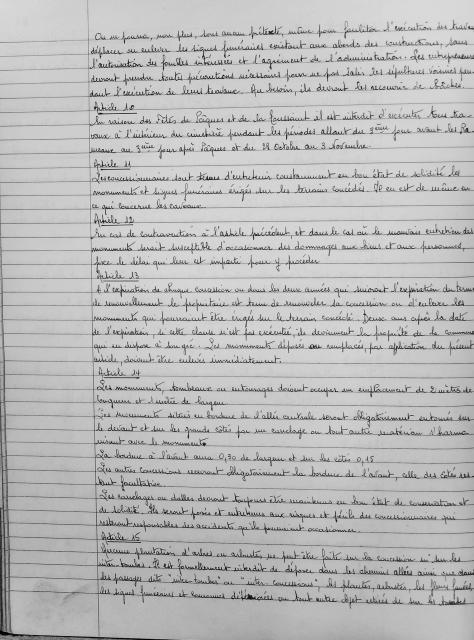 On ne pourra, non plus, sous aucun prétexte, même pour faciliter l'exécution des travaux
déplacer ou enlever les signes funéraires existant aux abords des constructions, sans
l'autorisation des familles intéressées et l'agrément de l'administration. Les entrepreneurs
devront prendre toutes précautions nécessaires pour ne pas salir les sépultures voisines pen-
dant l'exécution de leurs travaux. Au besoin, ils devront les recouvrir de bâches.
Article 10
En raison des Fêtes de Pâques et de la Toussaint il est interdit d'exécuter tous tra-
vaux à l'intérieur du cimetière pendant les périodes allant du jour avant les Ra-
meaux au 3ème jour après Pâques et du 28 Octobre au 3 Novembre.
Article 11
Les concessionnaires sont tenus d'entretenir constamment en bon état de solidité les
monuments et signes funéraires érigés sur les terrains concédés. Il en est de même en
ce qui concerne les caveaux.
Article 12
En cas de contravention à l'article précédent, et dans le cas où le mauvais entretien des
monuments serait susceptible d'occasionner des dommages aux biens et aux personnes,
fixe le délai qui leur est imparti pour y procéder
Article 13
A l'expiration de chaque concession ou dans les deux années qui suivront l'expiration du terme
de renouvellement le propriétaire est tenu de renouveler sa concession ou d'enlever les
monuments qui pourraient être érigés sur le terrain concédé. Deux ans après la date
de l'expiration, si cette clause n'est pas exécutée, ils deviennent la propriété de la commune
qui en dispose à son gré. Les monuments déposés ou remplacés, par application du présent
article, doivent être enlevés immédiatement.
Article 14
Les monuments, tombeaux ou entourages doivent occuper un emplacement de 2 mètres de
longueur et 1 mètre de largeur
Les monuments situés en bordure de l'allée centrale seront obligatoirement entourés sur
le devant et sur les grands côtés par un carrelage ou tout autre matériau s'harmo-
nisant avec le monument
La bordure à l'avant aura 0,30 de largeur et sur les côtés 0,15
Les autres concessions recevront obligatoirement la bordure de l'avant, celle des côtés res-
tant facultative.
Les carrelages ou dalles devront toujours être maintenus en bon état de conservation et
de solidité. Ils seront posés et entretenus aux risques et périls des concessionnaires qui
resteront responsables des accidents qu'ils peuvent occasionner.
Article 15
Aucune plantation d'arbres ou arbustes ne peut être faite sur la concession ni sur les
inter-tombes. Il est formellement interdit de déposer dans les chemins allées ainsi que dans
les passages dits "inter-tombes" ou "inter-concessions", les plantes, arbustes, les fleurs fanées,
les signes funéraires et couronnes détériorées ou tout autre objet retirés de sur les tombes